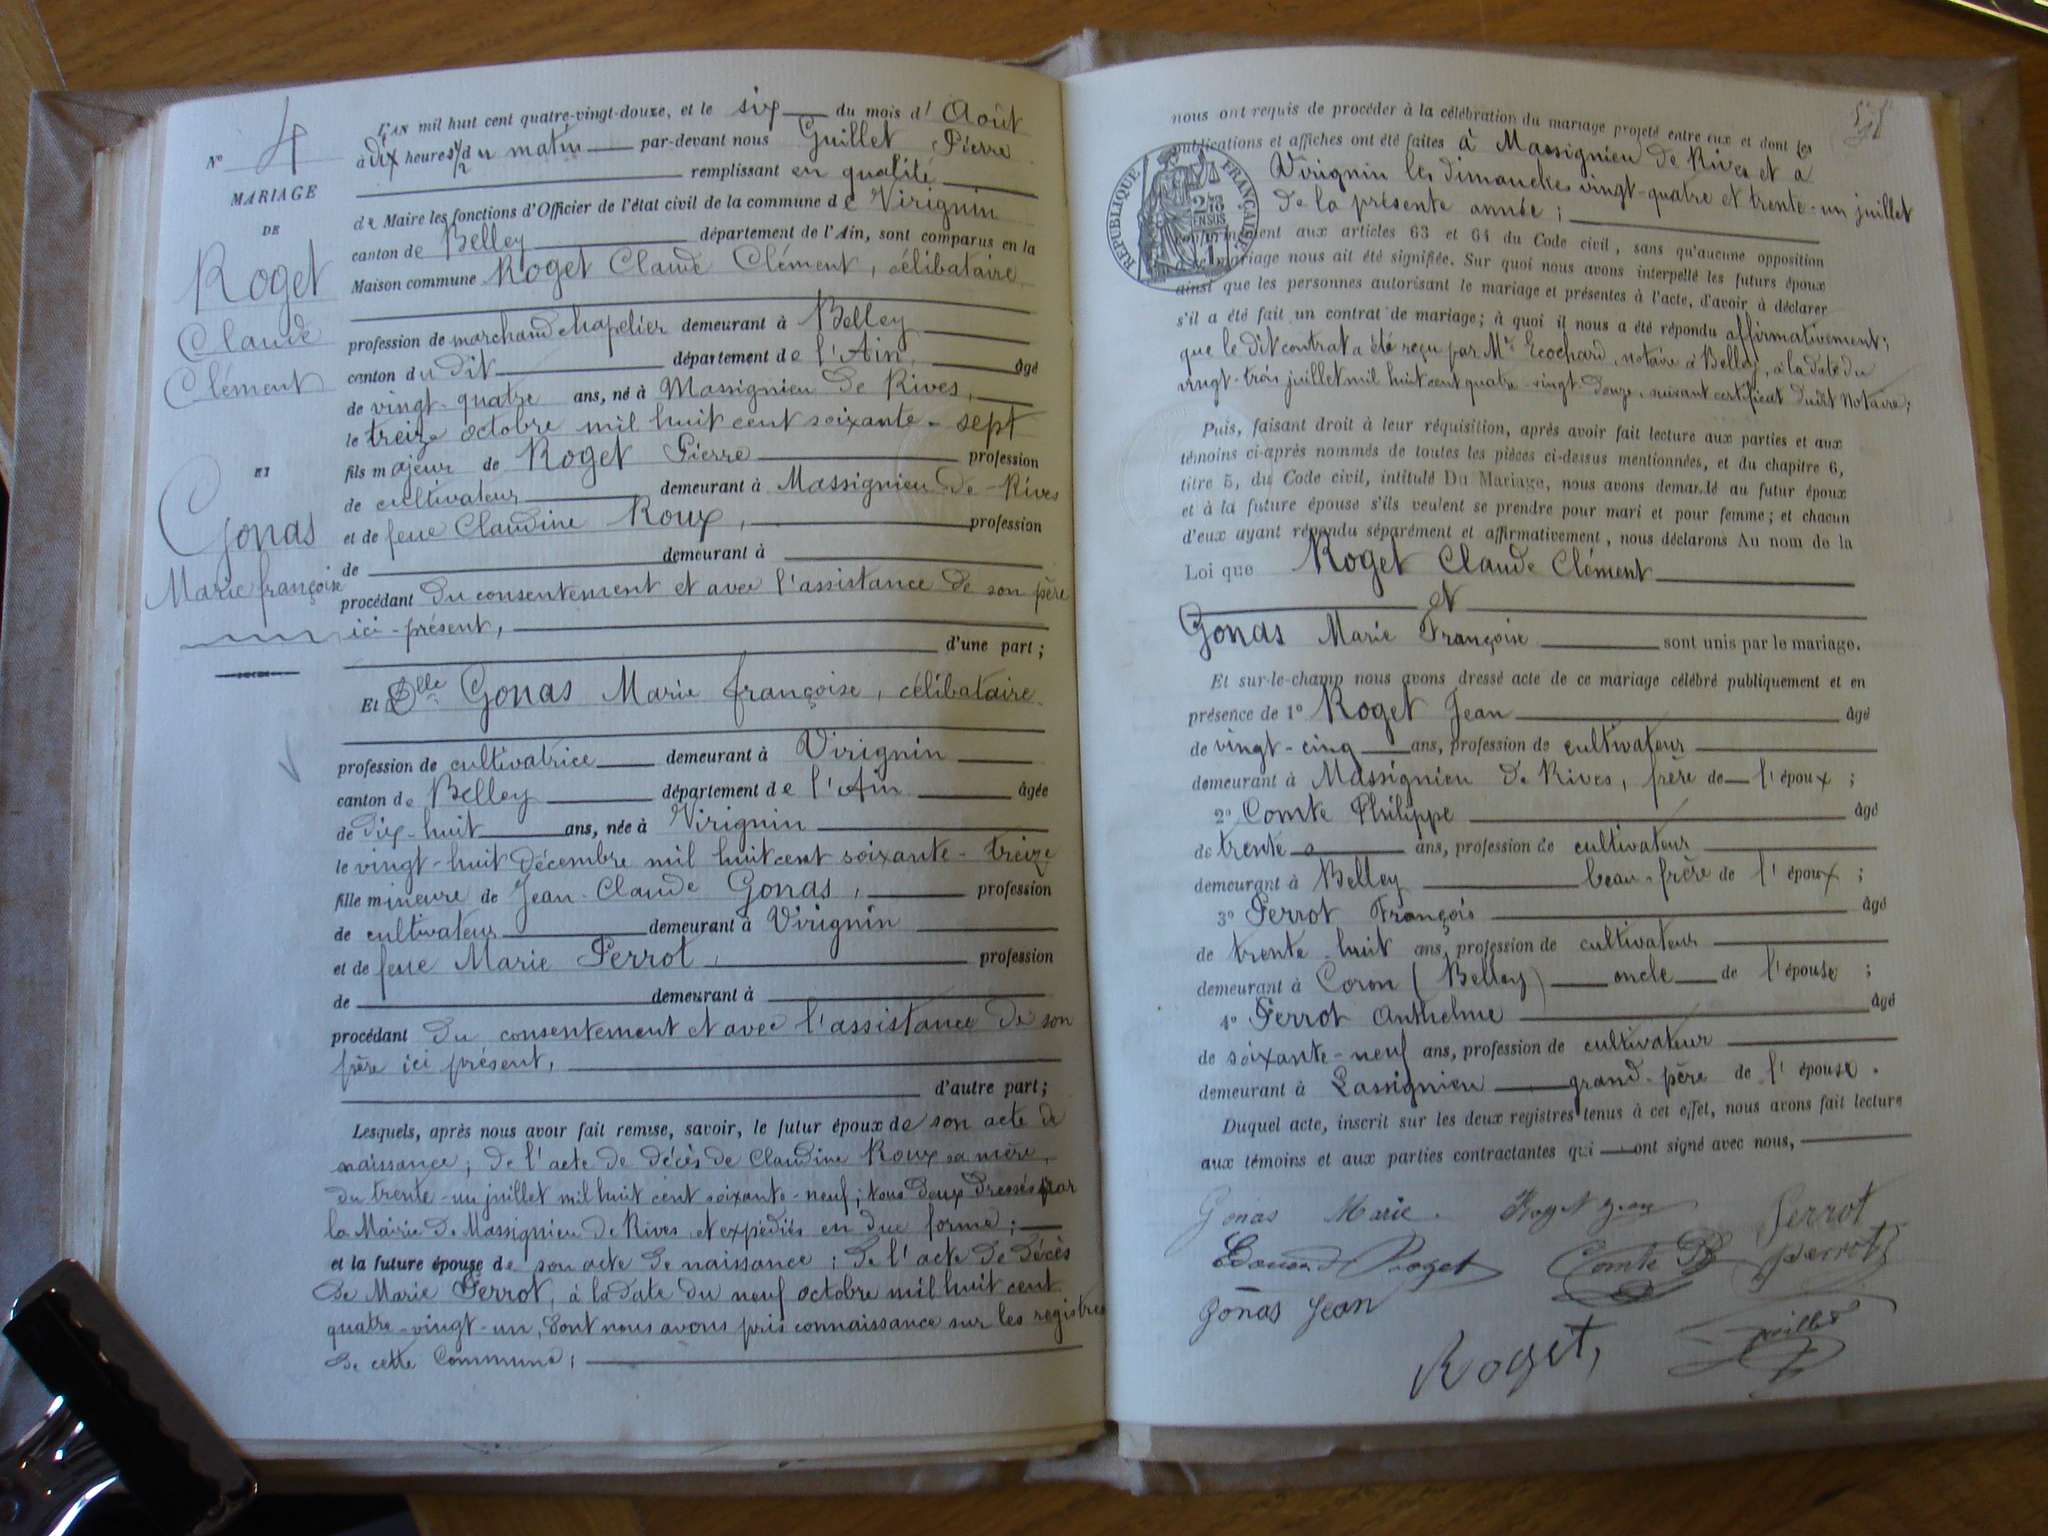 L'AN mil huit cent quatre-vingt-douze, et le six du mois d'Août
à dix heures 1/2 du matin par-devant nous Guillet Pierre
remplissant en qualité
de Maire les fonctions d'Officier de l'état civil de la commune de Virignin
canton de Belley département de l'Ain, sont comparus en la
Maison commune Roget Claude Clément, célibataire
profession de marchand chapelier demeurant à Belley
canton du dit département de l'Ain, âgé
de vingt-quatre ans, né à Massignieu de Rives,
le treize octobre mil huit cent soixante-sept
fils majeur de Roget Pierre profession
de cultivateur demeurant à Massignieu-de-Rives
et de feue Claudine Roux, profession
de demeurant à
procédant du consentement et avec l'assistance de son père
ici-présent,
d'une part;
Et Dlle Gonas Marie françoise, célibataire
profession de cultivatrice demeurant à Virignin
canton de Belley département de l'Ain âgée
de dix-huit ans, née à Virignin
le vingt-huit décembre mil huit cent soixante-treize
fille mineure de Jean-Claude Gonas, profession
de cultivateur demeurant à Virignin
et de feue Marie Perrot, profession
de demeurant à
procédant du consentement et avec l'assistance de son
père ici présent,
d'autre part;
Lesquels, après nous avoir fait remise, savoir, le futur époux de son acte de
naissance; de l'acte de décès de Claudine Roux sa mère,
du trente-un juillet mil huit cent soixante-neuf; tous deux dressés par
la Mairie de Massignieu de Rives et expédiés en due forme;
et la future épouse de son acte de naissance; de l'acte de décès
de Marie Perrot, à la date du neuf octobre mil huit cent
quatre-vingt-un, dont nous avons pris connaissance sur les registres
de cette Commune;
N° 4
MARIAGE
DE
Roget
Claude
Clément
ET
Gonas
Marie françoise
nous ont requis de procéder à la célébration du mariage projeté entre eux et dont les
publications et affiches ont été faites à Massignieu de Rives et à
Virignin les dimanches vingt-quatre et trente-un juillet
de la présente année;
conformément aux articles 63 et 64 du Code civil, sans qu'aucune opposition
à ce mariage nous ait été signifiée. Sur quoi nous avons interpellé les futurs époux
ainsi que les personnes autorisant le mariage et présentes à l'acte, d'avoir à déclarer
s'il a été fait un contrat de mariage; à quoi il nous a été répondu affirmativement;
que le dit contrat a été reçu par Me Ecochard, notaire à Belley, à la date du
vingt-trois juillet mil huit cent quatre-vingt-douze, suivant certificat dudit Notaire;
Puis, faisant droit à leur réquisition, après avoir fait lecture aux parties et aux
témoins ci-après nommés de toutes les pièces ci-dessus mentionnées, et du chapitre 6,
titre 5, du Code civil, intitulé Du Mariage, nous avons demandé au futur époux
et à la future épouse s'ils veulent se prendre pour mari et pour femme; et chacun
d'eux ayant répondu séparément et affirmativement, nous déclarons Au nom de la
Loi que Roget Claude Clément
et
Gonas Marie Françoise sont unis par le mariage.
Et sur-le-champ nous avons dressé acte de ce mariage célébré publiquement et en
présence de 1° Roget Jean âgé
de vingt-cinq ans, profession de cultivateur
demeurant à Massignieu de Rives, frère de l'époux;
2° Comte Philippe âgé
de trente ans, profession de cultivateur
demeurant à Belley beau-frère de l'époux;
3° Perrot François âgé
de trente-huit ans, profession de cultivateur
demeurant à Coron (Belley) oncle de l'épouse;
4° Perrot Anthelme âgé
de soixante-neuf ans, profession de cultivateur
demeurant à Lassignieu grand-père de l'épouse.
Duquel acte, inscrit sur les deux registres tenus à cet effet, nous avons fait lecture
aux témoins et aux parties contractantes qui ont signé avec nous,
Gonas Marie. Roget Jean Perrot
Roget Comte Ph Perrot
Gonas Jean
Roget, Guillet
RÉPUBLIQUE FRANÇAISE